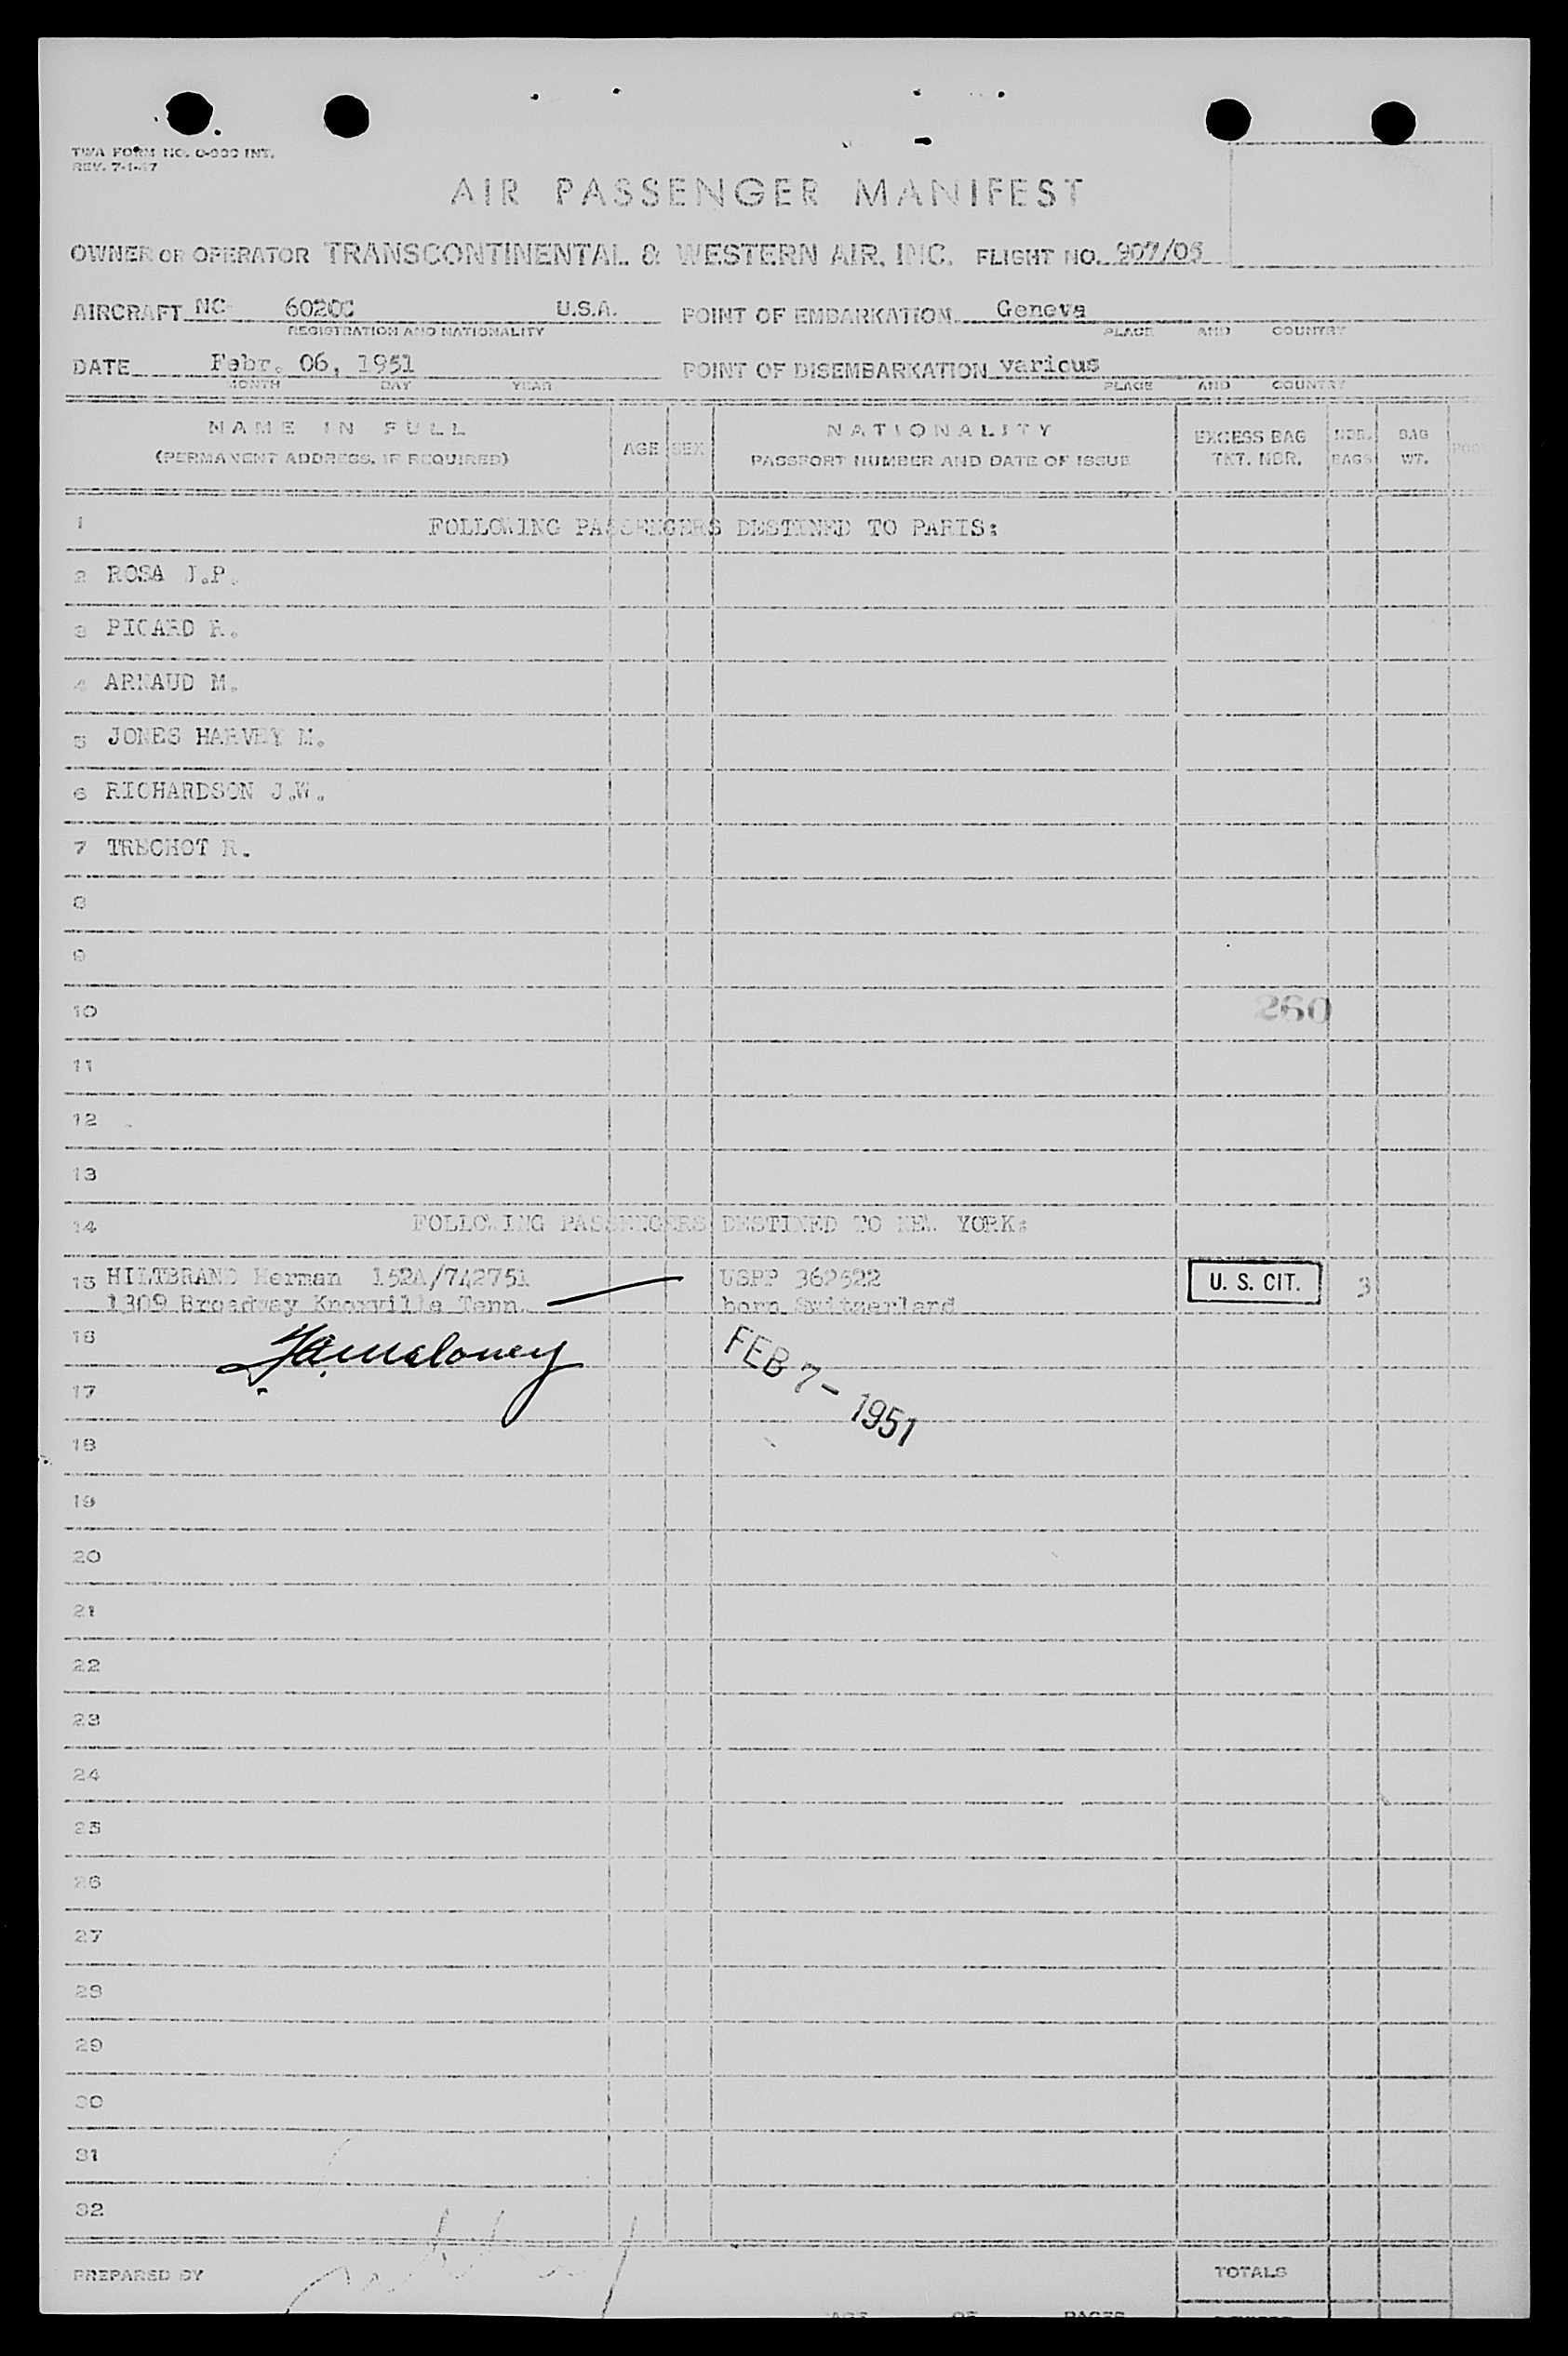 TWA FORM NO. O-900 INT.
REV. 7-1-47
AIR PASSENGER MANIFEST
OWNER OR OPERATOR TRANSCONTINENTAL & WESTERN AIR, INC. FLIGHT NO. 907/05
AIRCRAFT NC 6020C U.S.A. POINT OF EMBARKATION Geneva
REGISTRATION AND NATIONALITY PLACE AND COUNTRY
DATE Febr. 06, 1951 POINT OF DISEMBARKATION various
MONTH DAY YEAR PLACE AND COUNTRY
NAME IN FULL
(PERMANENT ADDRESS, IF REQUIRED)
AGE SEX
NATIONALITY
PASSPORT NUMBER AND DATE OF ISSUE
EXCESS BAG
TKT. NBR.
NBR.
BAGS
BAG
WT.
1 FOLLOWING PASSENGERS DESTINED TO PARIS:
2 ROSA J.P.
3 PICARD R.
4 ARNAUD M.
5 JONES HARVEY M.
6 RICHARDSON J.W.
7 TRECHOT R.
8
9
10 260
11
12
13
14 FOLLOWING PASSENGERS DESTINED TO NEW YORK:
15 HILTBRAND Herman 152A/742751 USPP 362522 U. S. CIT. 3
1309 Broadway Knoxville Tenn. born Switzerland
16 Maloney
FEB 7 - 1951
17
18
19
20
21
22
23
24
25
26
27
28
29
30
31
32
PREPARED BY
TOTALS
PAGE OF PAGES